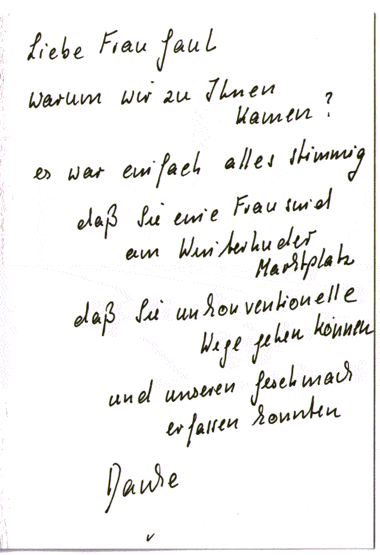 Liebe Frau Gaul
warum wir zu Ihnen
kamen?
es war einfach alles stimmig
daß Sie eine Frau sind
am Winterhuder
Marktplatz
daß Sie unkonventionelle
Wege gehen können
und unseren Geschmack
erfassen konnten
Danke